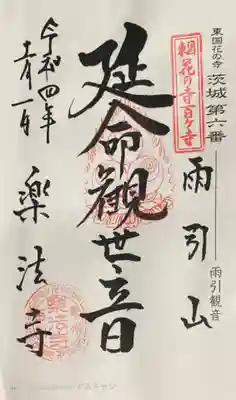 東国花の寺 茨城 第六番
雨引観音
東国花の寺百ヶ寺
雨引山
延命観世音
令和四年
十一月一日
楽法寺